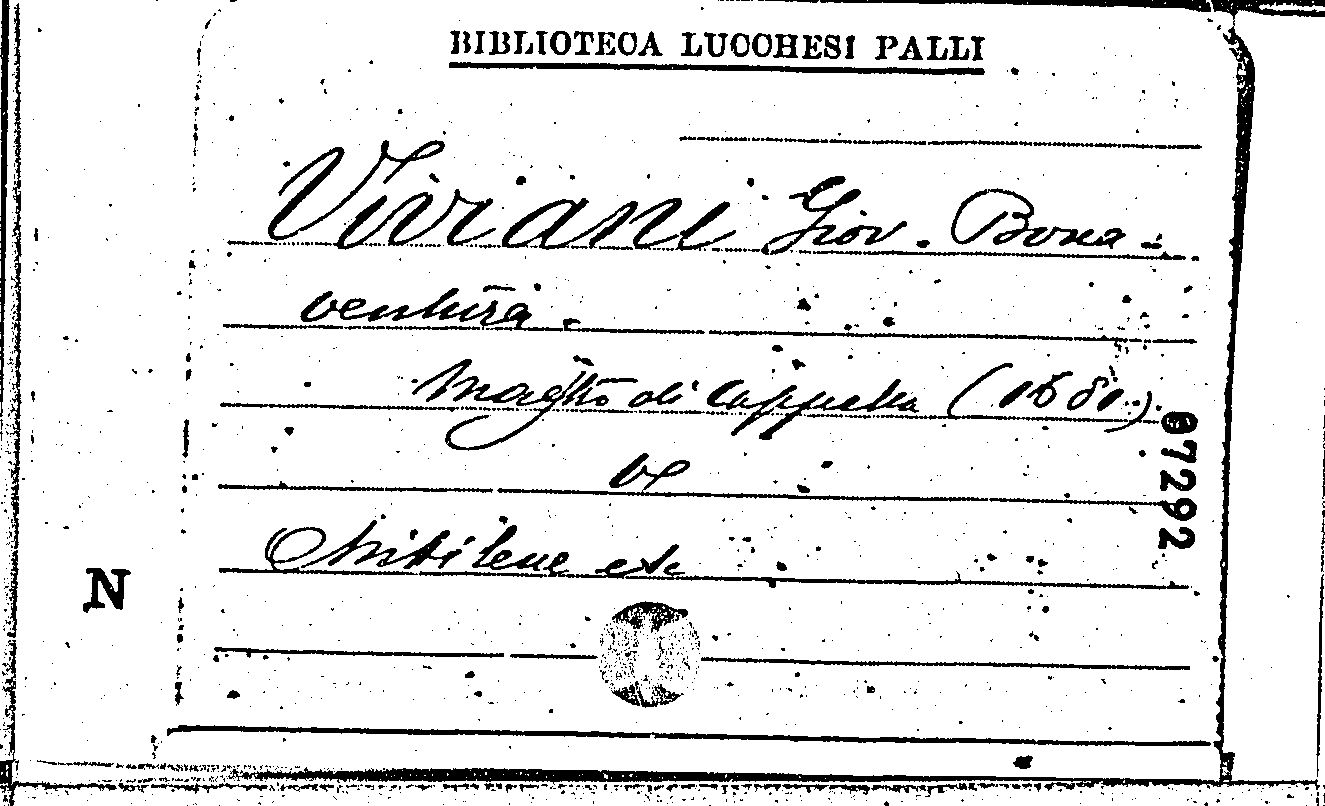 BIBLIOTECA LUCCHESI PALLI
Viviani Giov. Bona-
ventura.
Maestro di Cappella (1681.)
V
Mitilene etc
07292
N